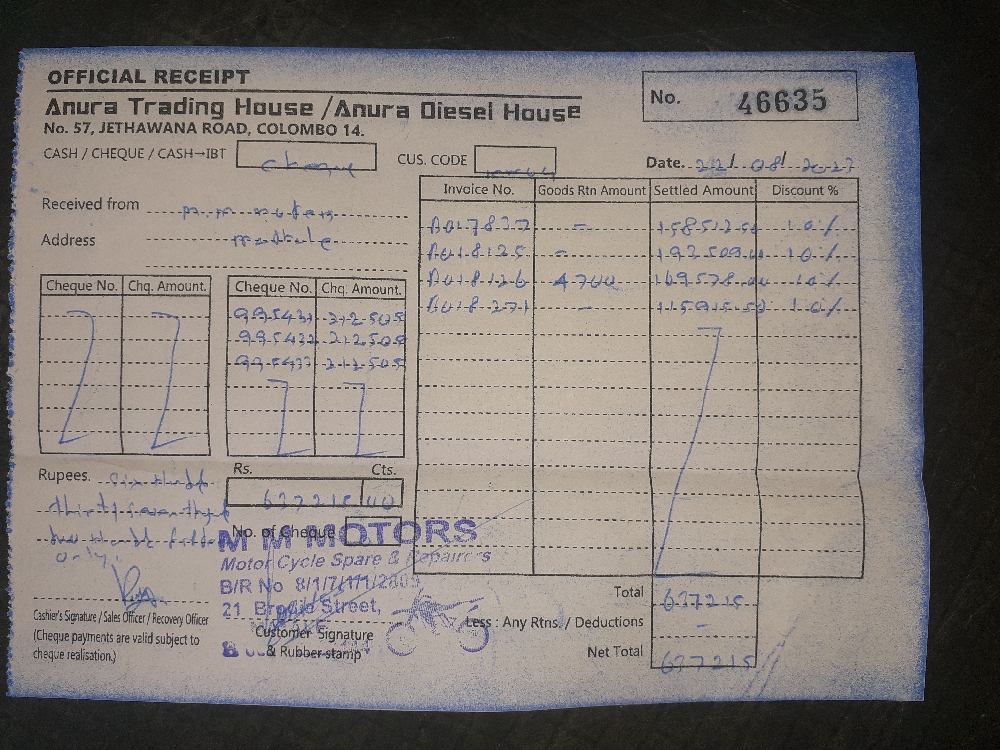 OFFICIAL RECEIPT
Anura Trading House / Anura Diesel House
No. 57, JETHAWANA ROAD, COLOMBO 14.
No. 46635
CASH / CHEQUE / CASH→IBT cheque
CUS. CODE
Date. 22/08/2023
Received from m.m. motors
Address matale
Invoice No. Goods Rtn Amount Settled Amount Discount %
A017837 - 158512.50 10%
A018125 - 193509.00 10%
A018126 4700 169578.00 10%
A018271 - 115915.50 10%
Cheque No. Chq. Amount. Cheque No. Chq. Amount.
995431 212505
995432 212505
995433 212505
Rs. Cts.
637215 00
Rupees. six hund
thirty seven thousand
two hund fifteen
only.
No. of Cheque
M M MOTORS
Motor Cycle Spare & Repairers
B/R No 8/1/7/1/1/2009
21 Brodie Street,
Cashier's Signature / Sales Officer / Recovery Officer
(Cheque payments are valid subject to
cheque realisation.)
Customer Signature
& Rubber stamp
Total 637215
Less : Any Rtns. / Deductions -
Net Total 637215